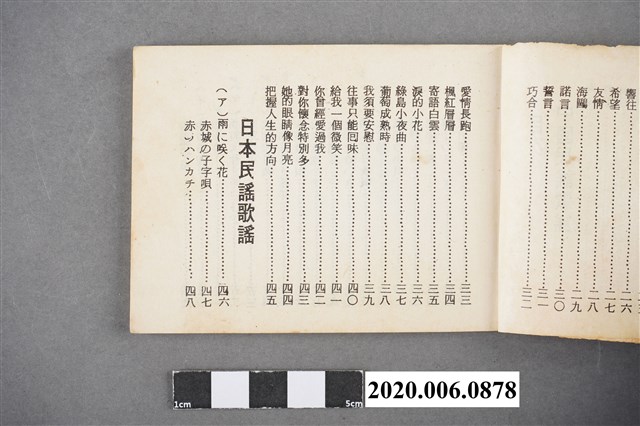 嚮往
希望………二六
友情………二七
海鷗………二八
諾言………二九
誓言………三〇
巧合………三一
愛情長跑………三三
楓紅層層………三四
寄語白雲………三五
淚的小花………三六
綠島小夜曲………三七
葡萄成熟時………三八
我須要安慰………三九
往事只能囘味………四〇
給我一個微笑………四一
你曾經愛過我………四二
對你懷念特別多………四三
她的眼睛像月亮………四四
把握人生的方向………四五
日本民謠歌謠
(ア)雨に咲く花………四六
赤城の子守唄………四七
赤いハンカチ………四八
1cm
5cm
2020.006.0878